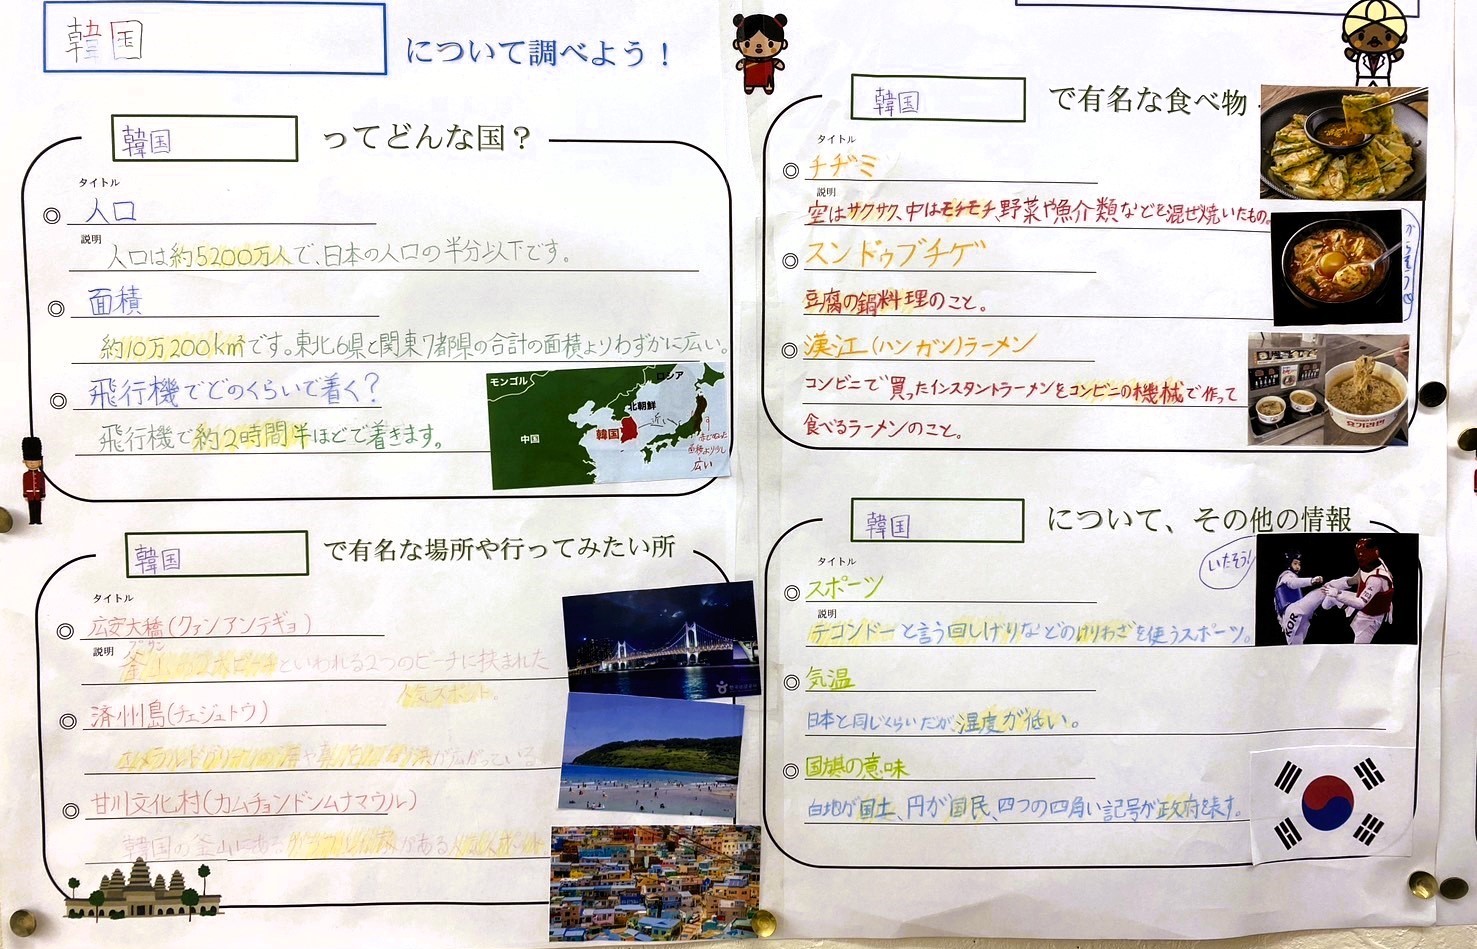 韓国 について調べよう！
韓国 ってどんな国？
タイトル
◎ 人口
説明
人口は約5200万人で、日本の人口の半分以下です。
◎ 面積
約10万200km²です。東北6県と関東7都県の合計の面積よりわずかに広い。
◎ 飛行機でどのくらいで着く？
飛行機で約2時間半ほどで着きます。
モンゴル
ロシア
北朝鮮
中国
韓国
近い
面積より少し
広い
韓国 で有名な場所や行ってみたい所
タイトル
◎ 広安大橋(クァンアンテギョ)
プサン
説明
釜山の2大ビーチといわれる2つのビーチに挟まれた
人気スポット。
◎ 済州島(チェジュトウ)
エメラルドグリーンの海や
が広がっている。
◎ 甘川文化村(カムチョンドンムナマウル)
韓国の釜山にあるカラフルな家がある人気スポット
韓国 で有名な食べ物
タイトル
◎ チヂミ
説明
空はサクサク、中はモチモチ、野菜や魚介類などを混ぜ焼いたもの。
◎ スンドゥブチゲ
豆腐の鍋料理のこと。
からそう
◎ 漢江(ハンガン)ラーメン
コンビニで買ったインスタントラーメンをコンビニの機械で作って
食べるラーメンのこと。
韓国 について、その他の情報
いたそう!
タイトル
◎ スポーツ
説明
テコンドーと言う回しげりなどのけりわざを使うスポーツ。
KOR
◎ 気温
日本と同じくらいだが、湿度が低い。
◎ 国旗の意味
白地が国土、円が国民、四つの四角い記号が政府を表す。